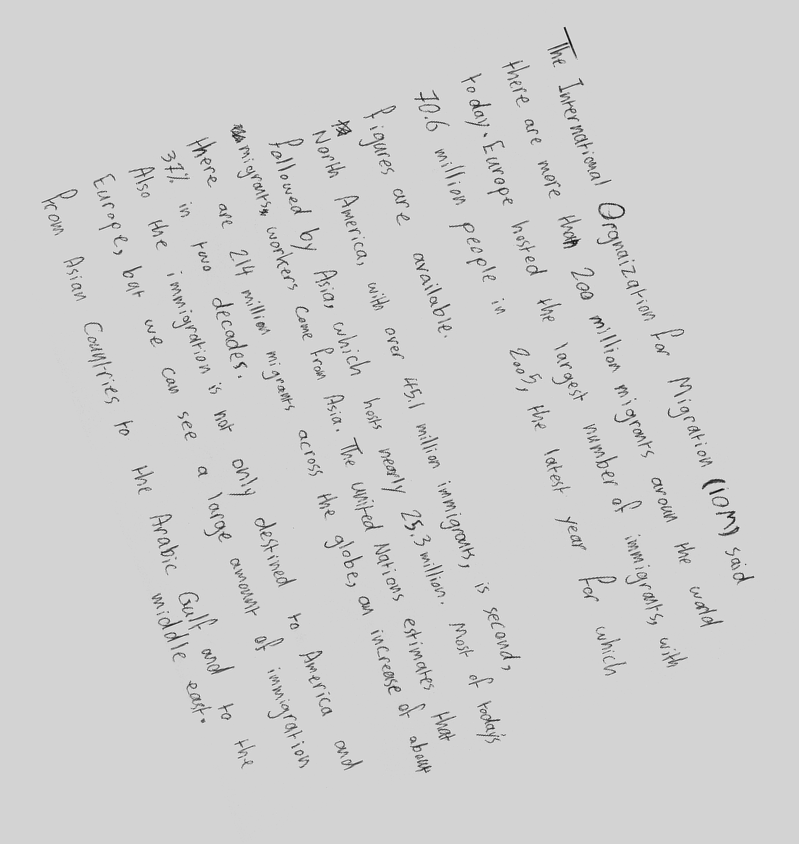 The International Orgnaization for Migration (IOM) said
there are more than 200 million migrants aroun the world
today. Europe hosted the largest number of immigrants, with
70.6 million people in 2005, the latest year for which
figures are available.
North America, with over 45.1 million immigrants, is second,
followed by Asia, which hosts nearly 25.3 million. Most of today's
migrants workers come from Asia. The united Nations estimates that
there are 214 million migrants across the globe, an increase of about
37% in two decades.
Also the immigration is not only destined to America and
Europe, but we can see a large amount of immigration
from Asian Countries to the Arabic Gulf and to the
middle east.